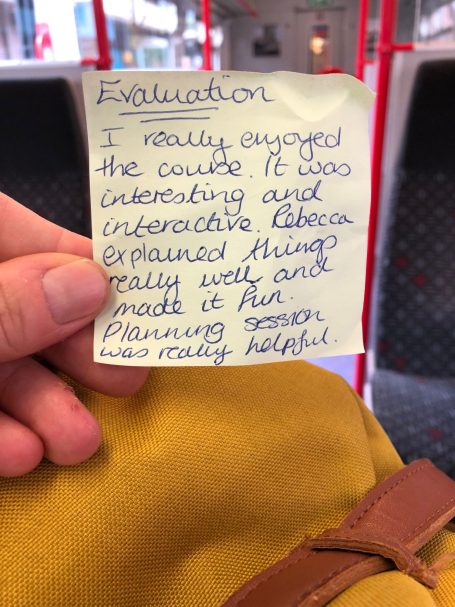 Evaluation
I really enjoyed
the course. It was
interesting and
interactive. Rebecca
explained things
really well and
made it fun.
Planning session
was really helpful.